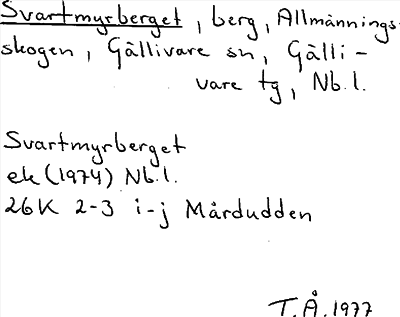 Svartmyrberget, berg, Allmännings-
skogen, Gällivare sn, Gälli-
vare tg, Nb.l.
Svartmyrberget
ek (1974) Nb.l.
26K 2-3 i-j Mårdudden
T.Å. 1977